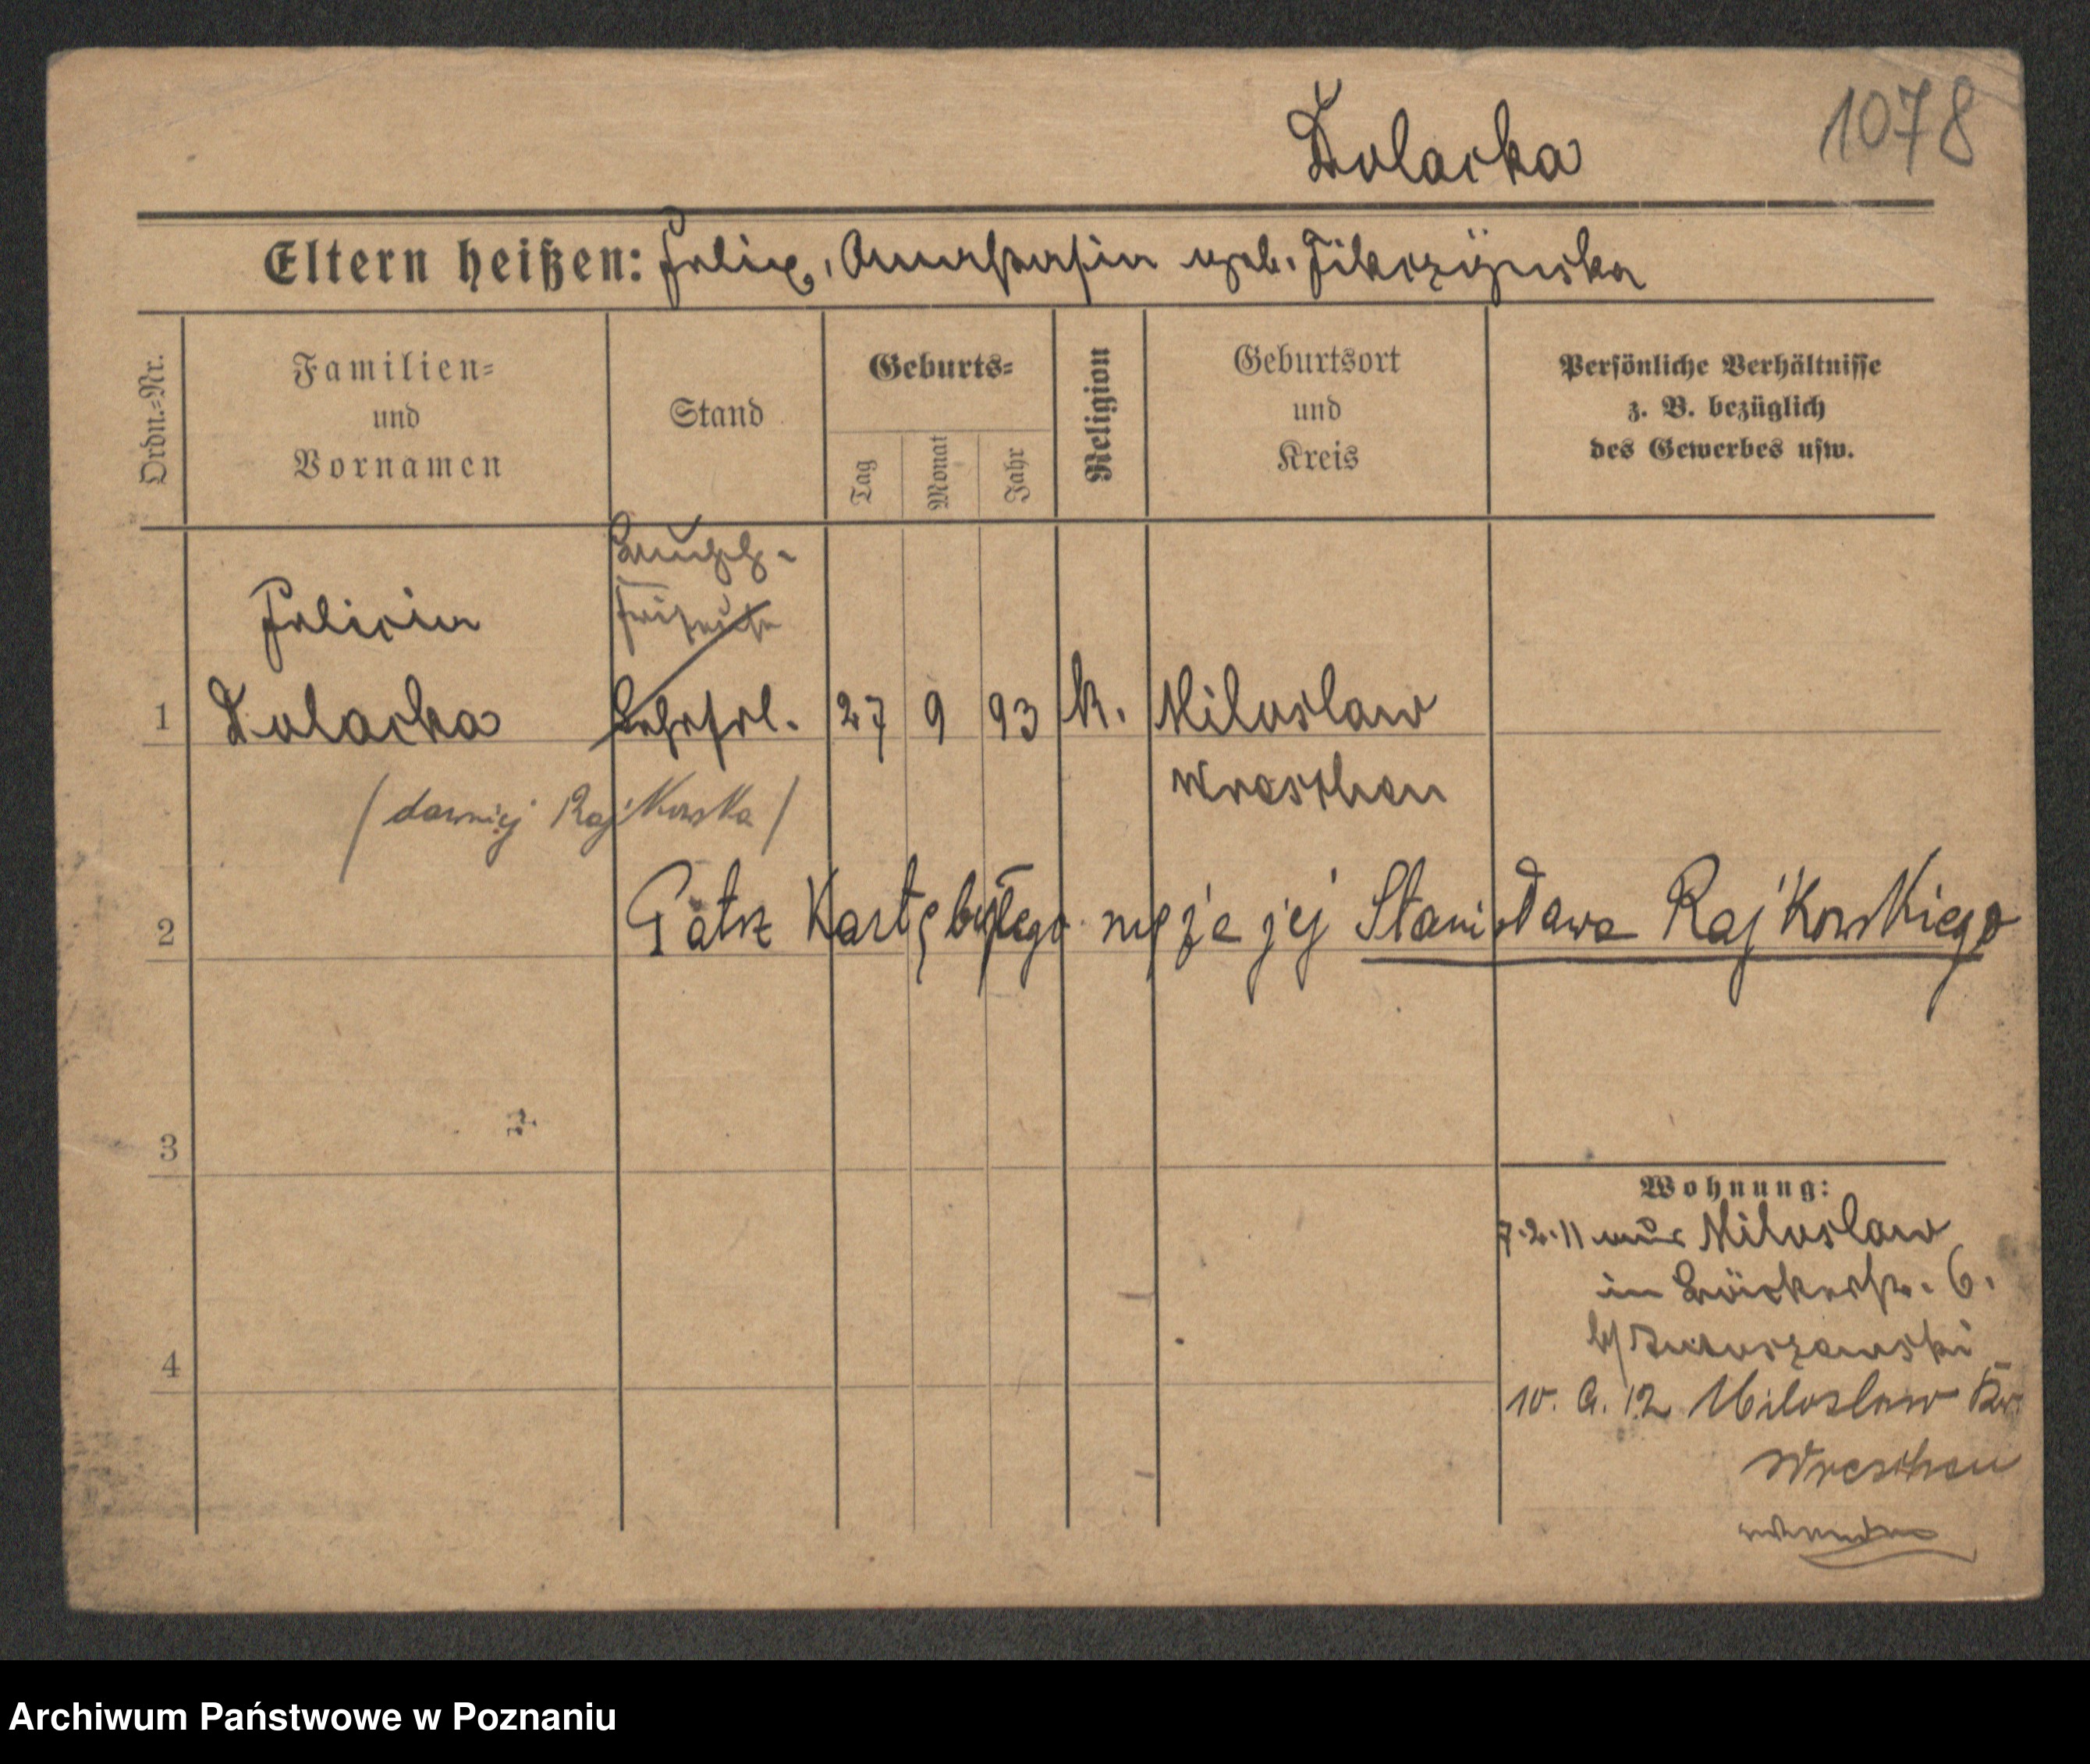 Dolacka
1078
Eltern heißen: Felix, Anastasia geb. Filczyńska
Ordn.-Nr.
Familien-
und
Vornamen
Stand
Geburts-
Tag
Monat
Jahr
Religion
Geburtsort
und
Kreis
Persönliche Verhältnisse
z. B. bezüglich
des Gewerbes usw.
Felicia
1 Dolacka 27 9 93 k. Miloslaw
Wreschen
/dawniej Rajkowska/
2 Patrz Kartę byłego męża jej Stanisława Rajkowskiego
3
Wohnung:
7.2.11 aus Miloslaw
in Bäckerstr. 6.
b/
4
10. 9. 12 Miloslaw Kr.
Wreschen
Archiwum Państwowe w Poznaniu